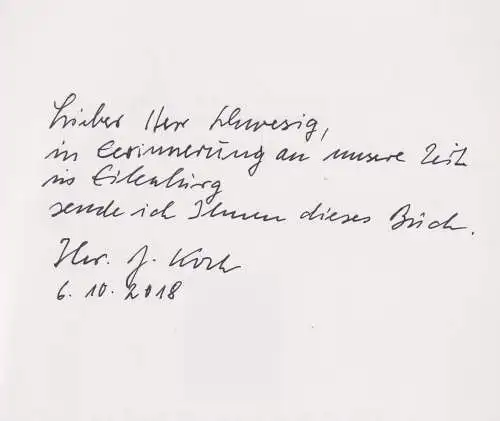 Lieber Herr Schwesig,
in Eerinnerung an unsere Zeit
in Eilenburg
sende ich Ihnen dieses Buch.
Ihr. J. Koch
6. 10. 2018